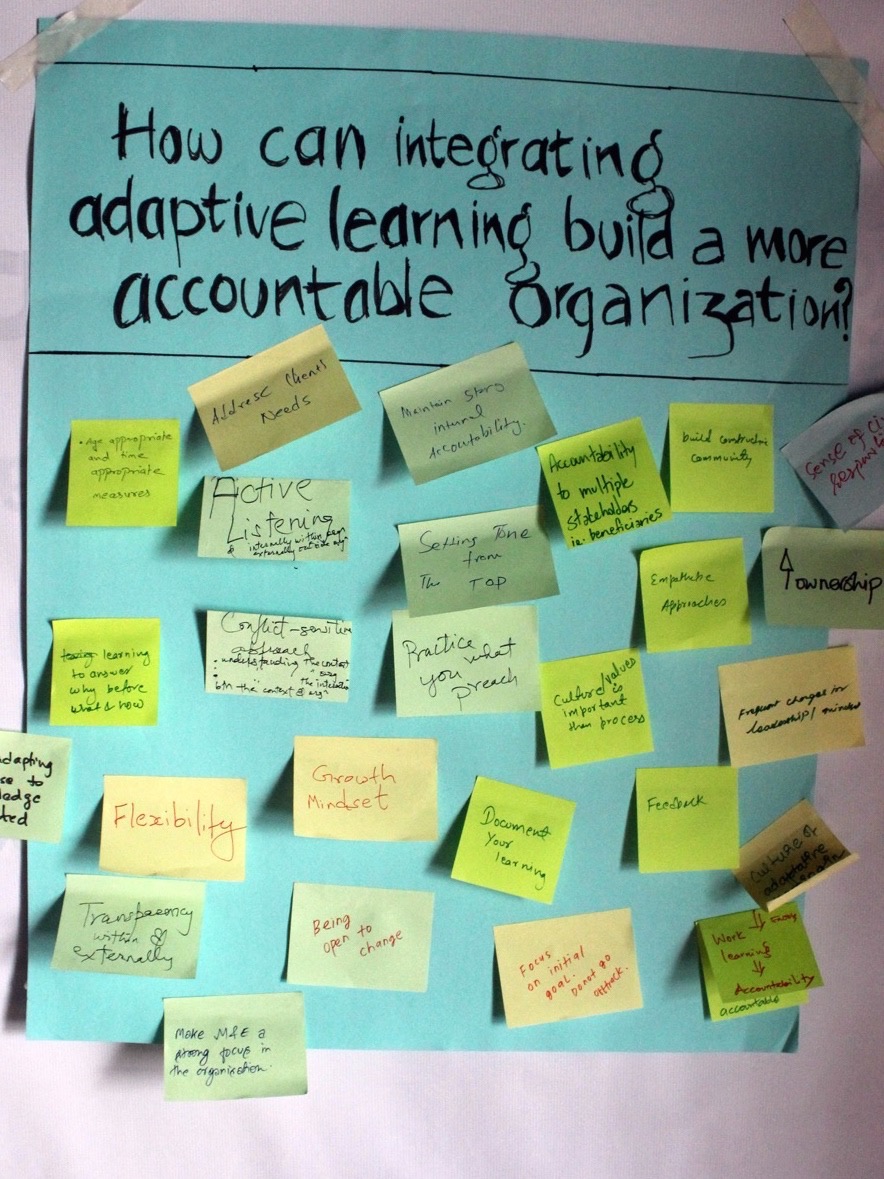 How can integrating
adaptive learning build a more
accountable organization?
Address Clients
Needs
Maintain Strong
internal
Accountability.
• Age appropriate
and time
appropriate
measures
Active
Listening
internally within
externally outside
Accountability
to multiple
stakeholders
ie. beneficiaries
build constructive
community
Sense of
Setting Tone
from
The TOP
Empathetic
Approaches
↑ ownership
learning
to answer
why before
what & how
Conflict-sensitive
approach
• understanding the context
" the
b/n the "context & org"
Practice
you what
preach
Culture/values
is
important
then process
Frequent changes in
leadership/
adapting
to
ted
Flexibility
Growth
Mindset
Document
Your
learning
Feedback
Culture of
adaptative
Transparency
within &
externally
Being
open to
change
Focus
on initial
goal.
Donot go
offtrack.
Work
learning
↓
Accountability
accountable
Make M&E a
strong focus in
the organization.